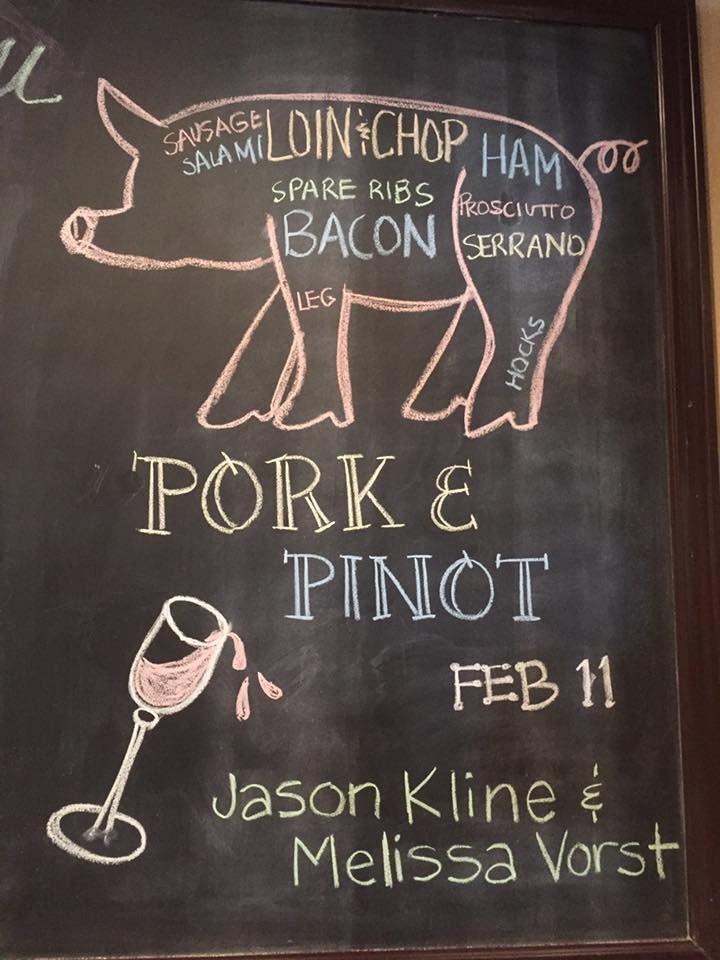 SAUSAGE
SALAMI
LOIN & CHOP
HAM
SPARE RIBS
BACON
PROSCIUTTO
SERRANO
LEG
HOCKS
PORK &
PINOT
FEB 11
Jason Kline &
Melissa Vorst